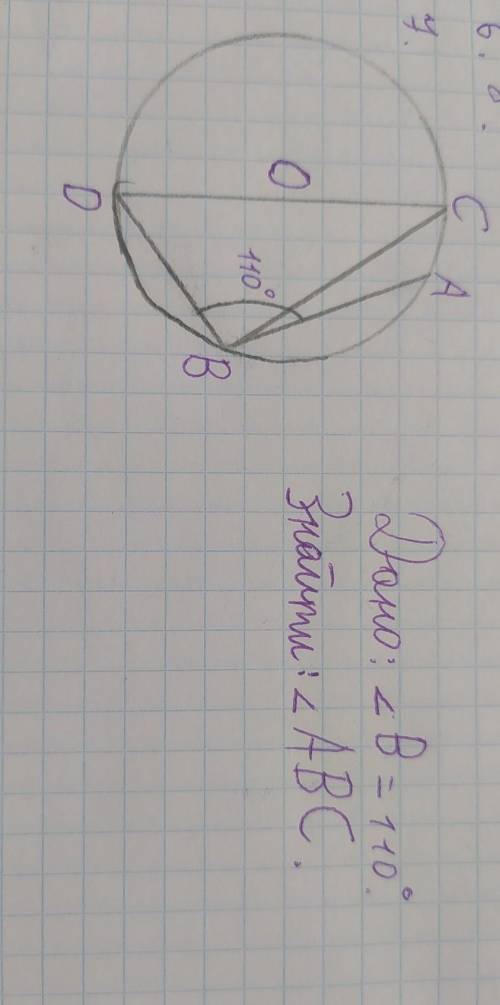 6. 8.
7.
C
A
O
110°
D
B
Дано: ∠B = 110°.
Знайти: ∠ABC.